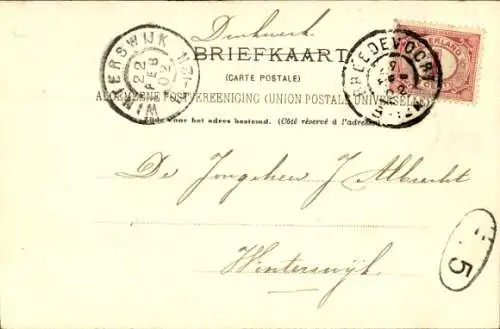 Drukwerk
BRIEFKAART
(CARTE POSTALE)
ALGEMEENE POSTVEREENIGING (UNION POSTALE UNIVERSELLE)
Zijde voor het adres bestemd. (Côté réservé à l'adresse)
WINTERSWIJK
22 FEB 02
BREEDEVOORT
De Jongeheer J Albrecht
Winterswijk
5